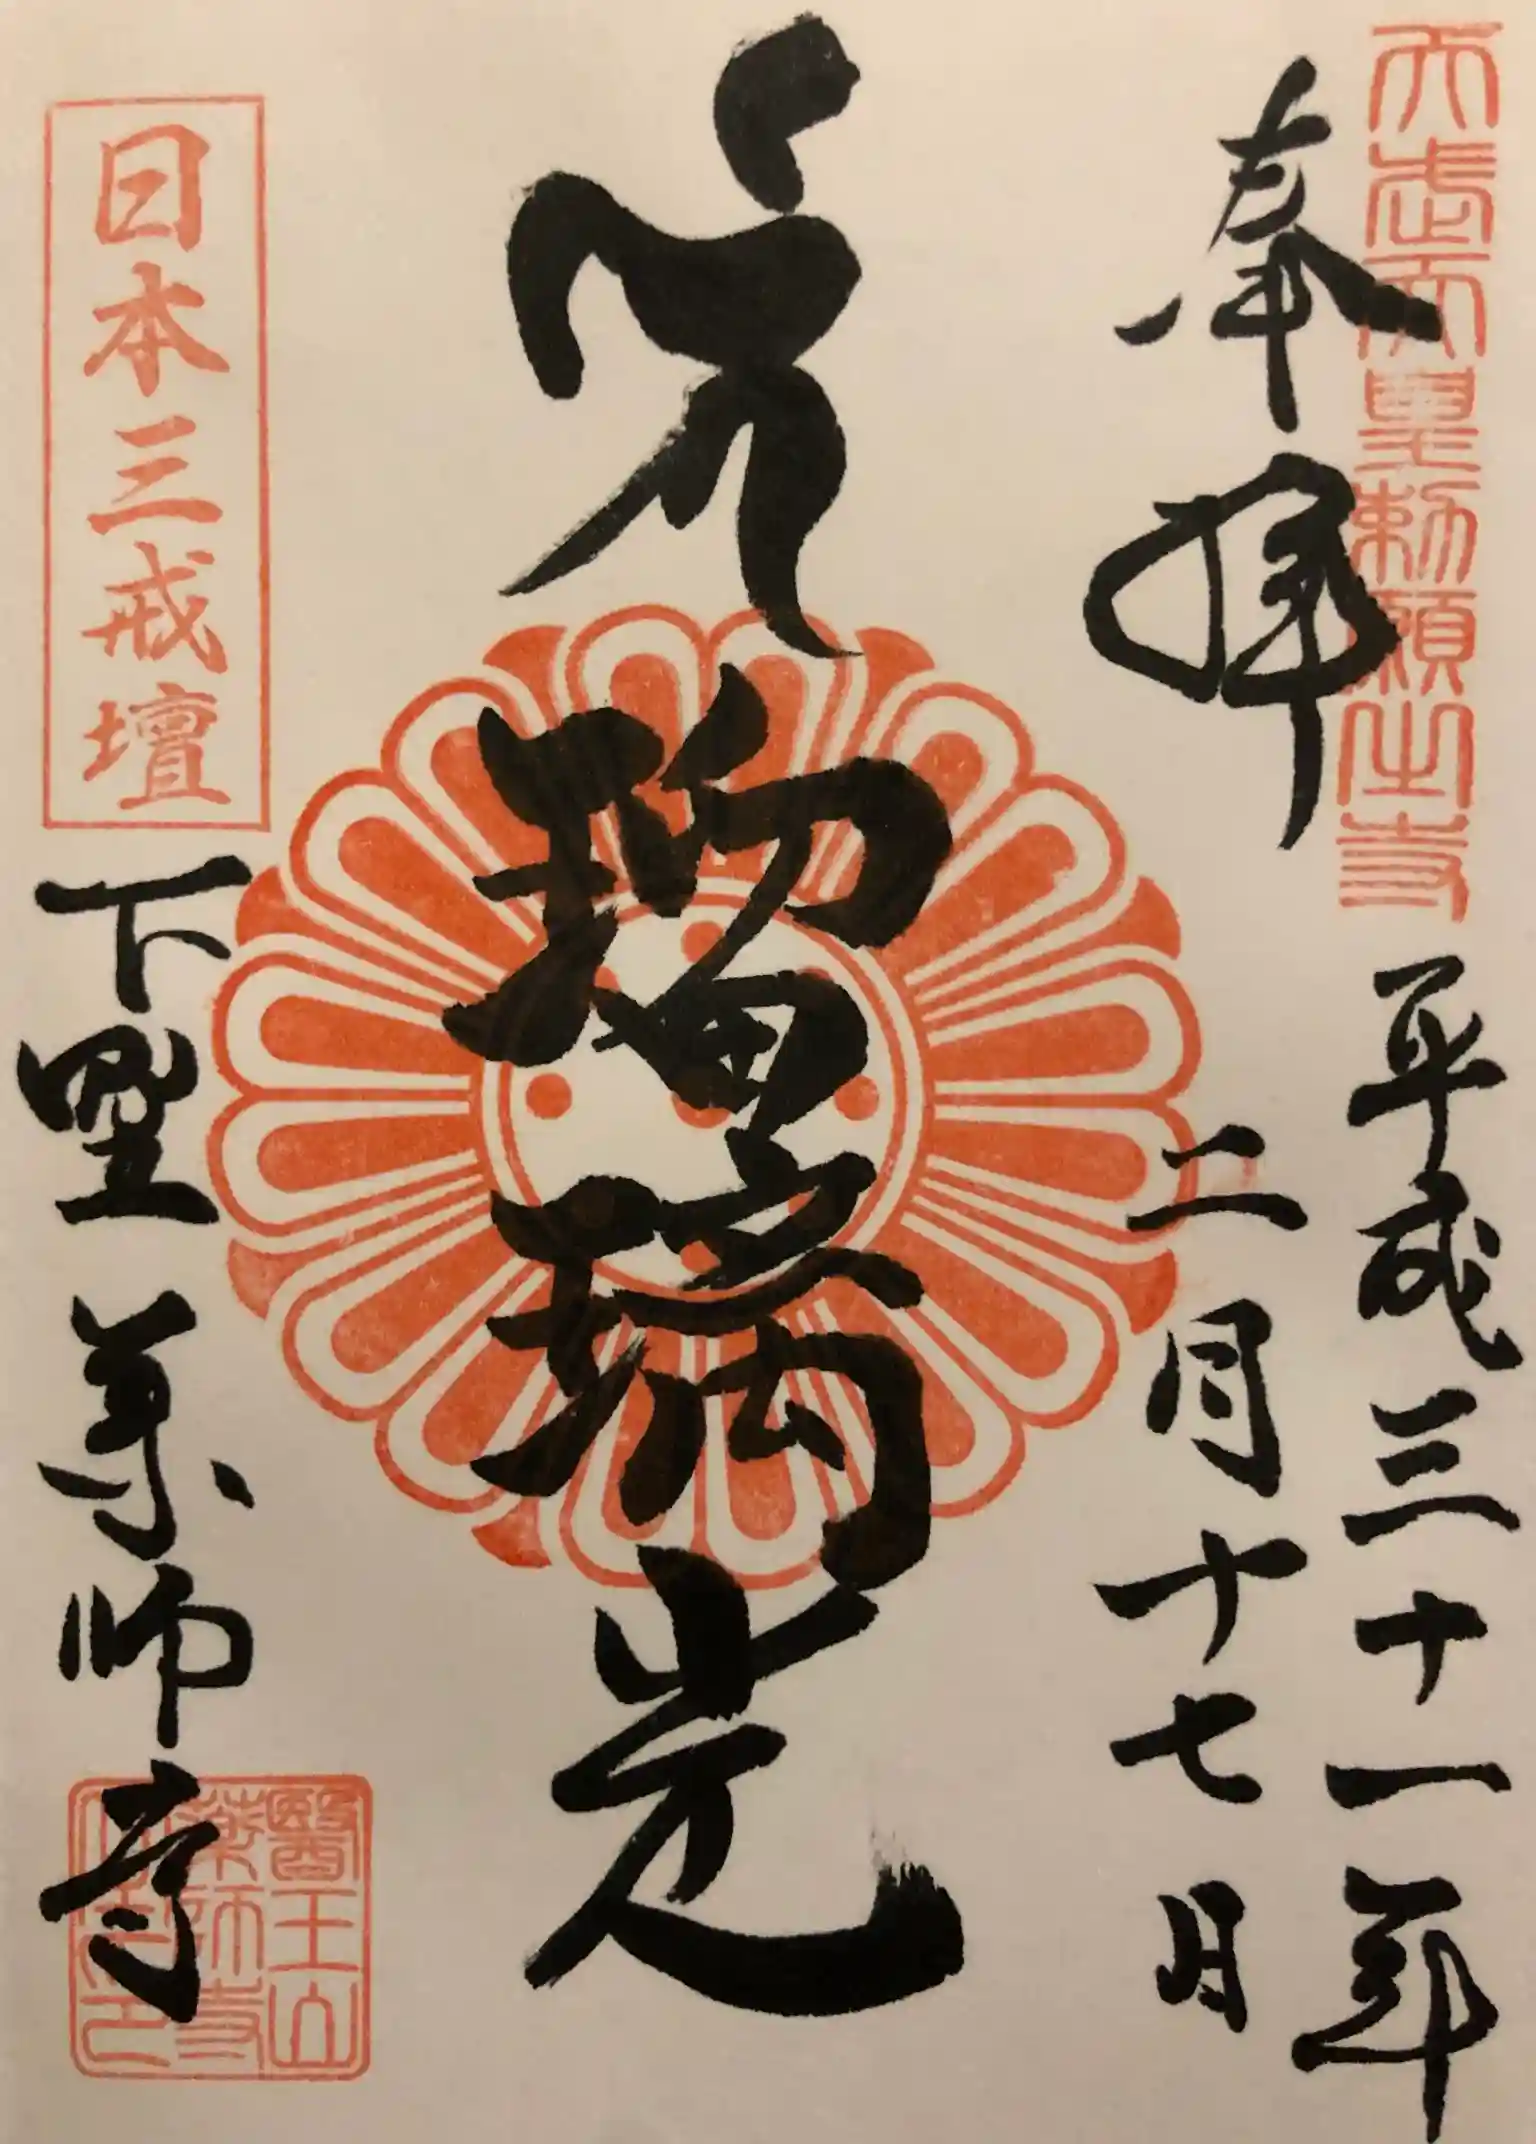 天武天皇勅願之寺
奉拝
平成三十一年
二月十七日
瑠璃光
日本三戒壇
下野薬師寺
醫王山
薬師寺